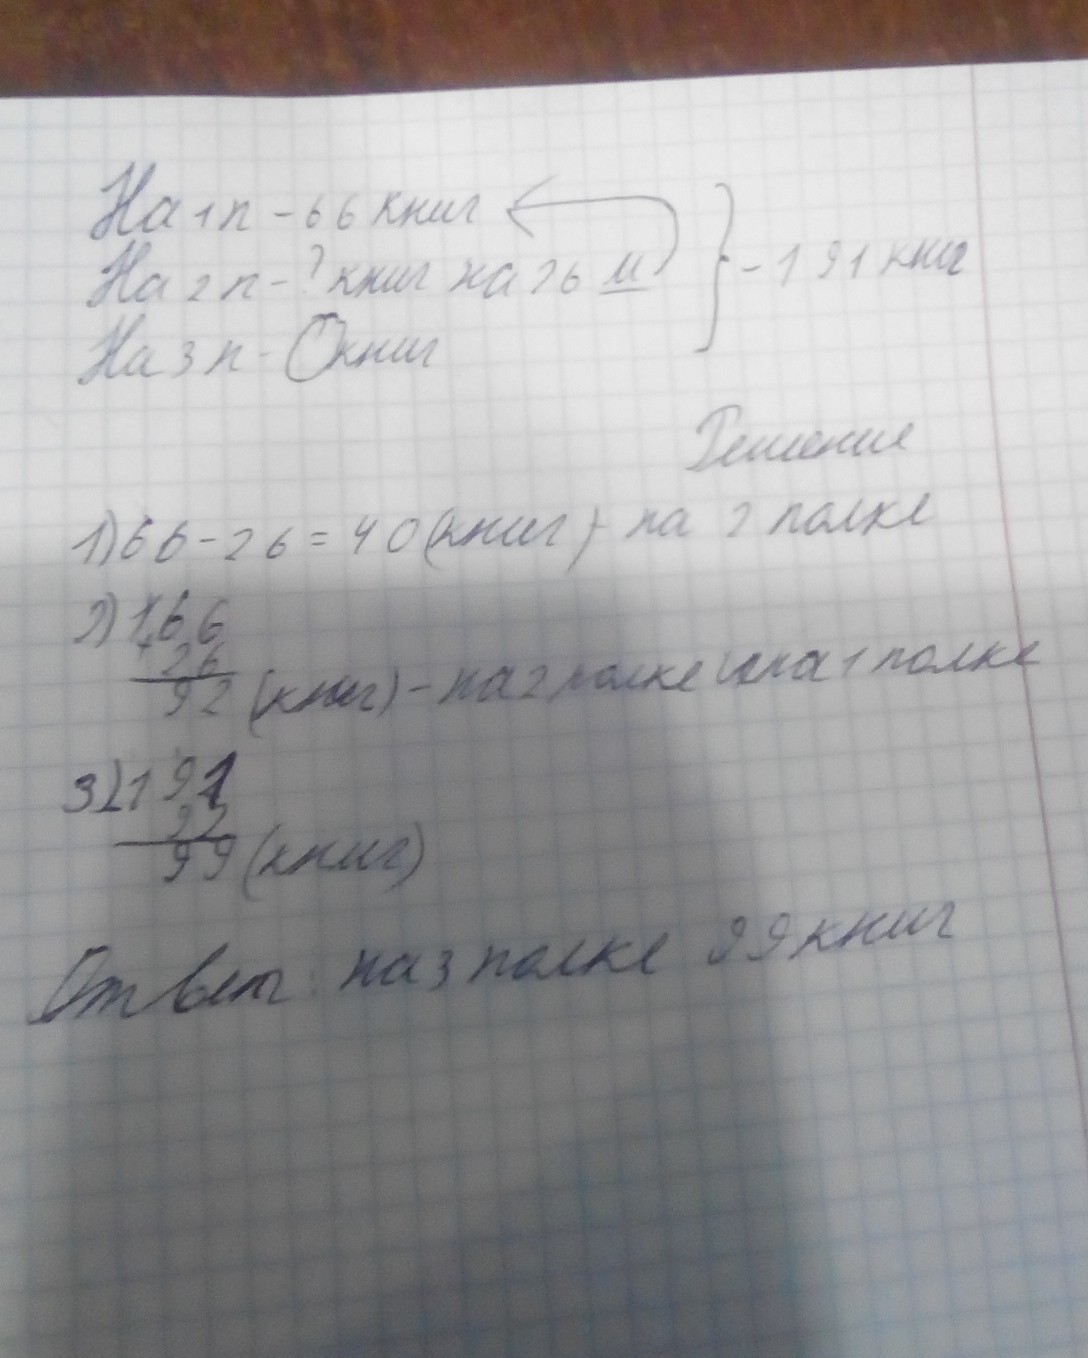 На 1 п - 66 книг
На 2 п - ? книг на 26 м } - 191 книг
На 3 п - ? книг
Решение
1) 66 - 26 = 40 (книг) - на 2 полке
2) 66
+ 26
92 (книг) - на 2 полке и на 1 полке
3) 191
92
99 (книг)
Ответ: на 3 полке 99 книг